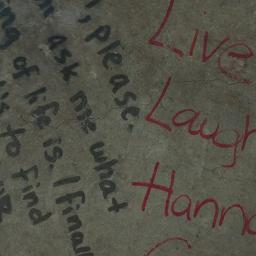 , please.
ask me what
ng of life is. I final
s to find
Live
Laugh
Hanna